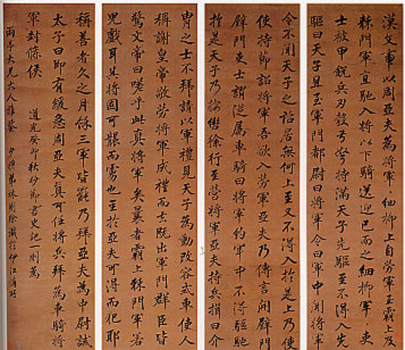 漢文帝以周亞夫為將軍細柳上自勞軍至霸上及
棘門軍直馳入將以下騎送迎已而之細柳軍吏
士被甲銳兵刃彀弓弩持滿天子先驅至不得入先
驅曰天子且至軍門都尉曰將軍令曰軍中聞將軍
令不聞天子之詔居無何上至又不得入於是上乃使
使持節詔將軍吾欲入勞軍亞夫乃傳言開壁門
壁門吏士謂從屬車騎曰將軍約軍中不得驅馳
於是天子乃按轡徐行至營將軍亞夫持兵揖曰介
冑之士不拜請以軍禮見天子為動改容式車使人
稱謝皇帝敬勞將軍成禮而去既出軍門群臣皆
驚文帝曰嗟乎此真將軍矣曩者霸上棘門軍若
兒戲耳其將固可襲而虜也至於亞夫可得而犯耶
稱善者久之月餘三軍皆罷乃拜亞夫為中尉
太子曰即有緩急周亞夫真可任將兵拜為車騎將
軍封條侯 道光癸卯秋抄節書史記一則為
雨亭大兄大人雅鑒 少穆弟林則徐識於伊江